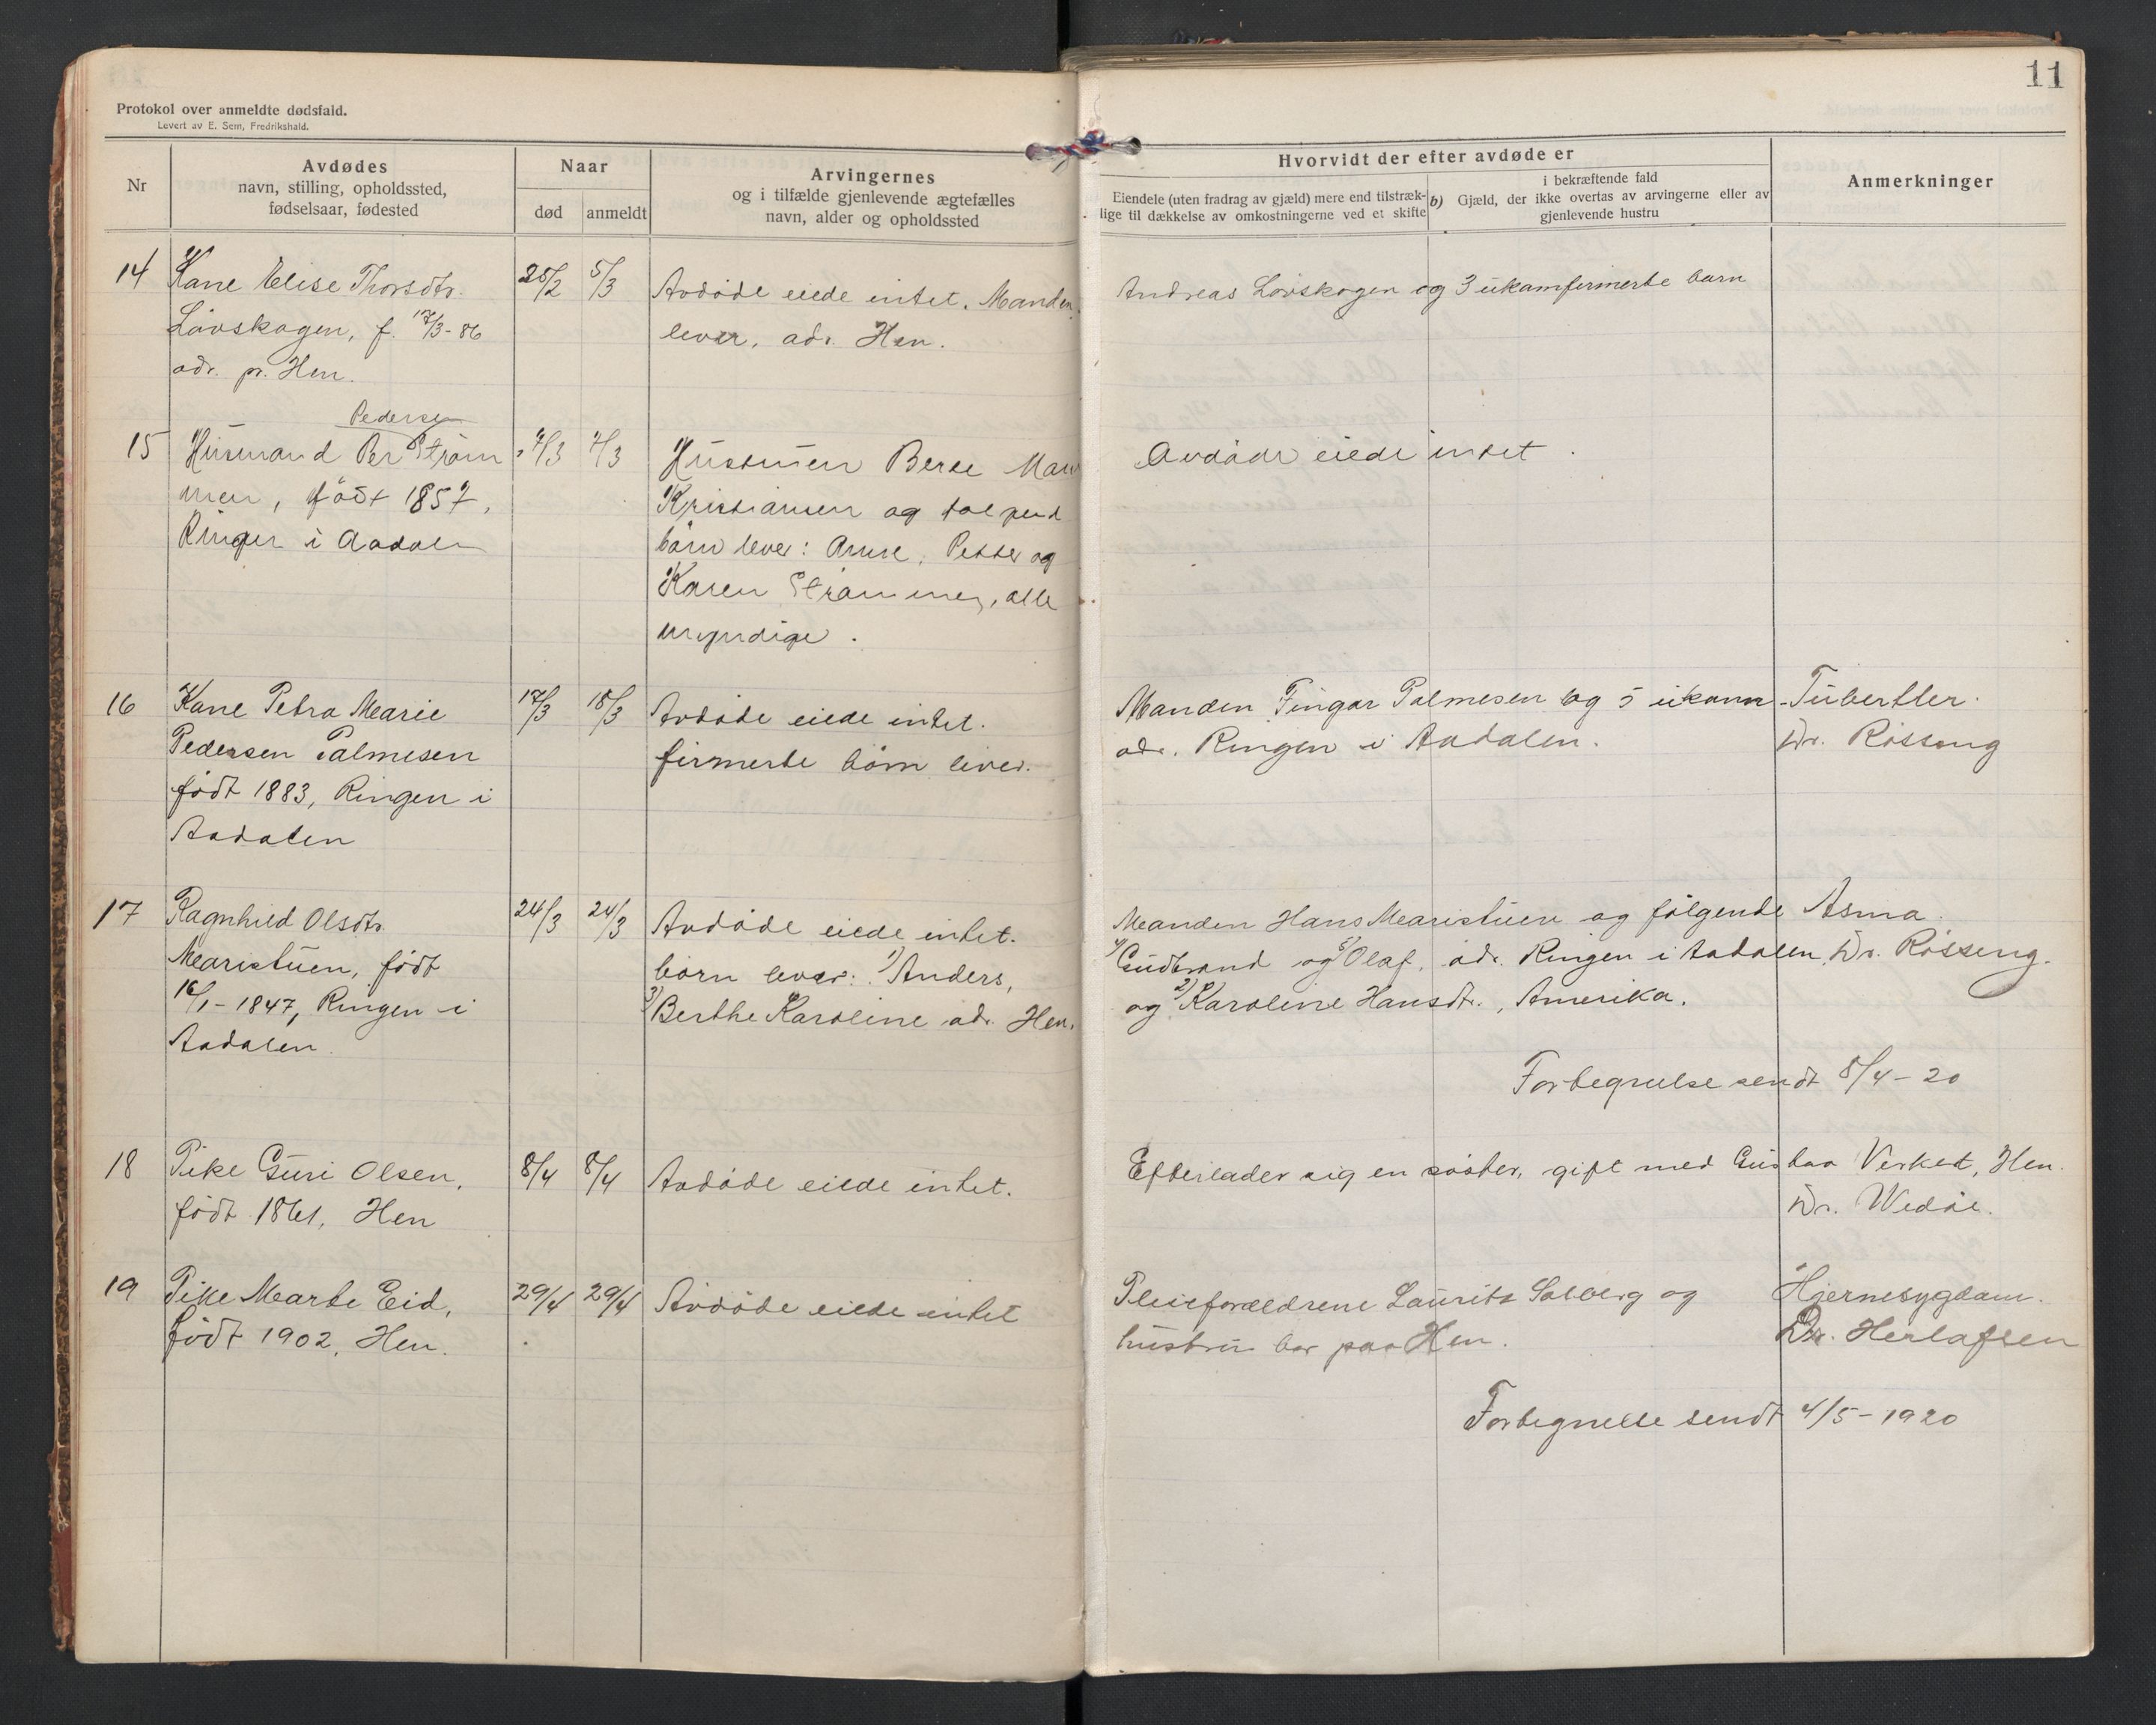 11
Protokol over anmeldte dødsfald.
Levert av E. Sem, Fredrikshald.
Nr
Avdødes
navn, stilling, opholdssted,
fødselsaar, fødested
Naar
død
anmeldt
Arvingernes
og i tilfælde gjenlevende ægtefælles
navn, alder og opholdssted
Hvorvidt der efter avdøde er
Eiendele (uten fradrag av gjæld) mere end tilstræk-
lige til dækkelse av omkostningerne ved et skifte
i bekræftende fald
b) Gjæld, der ikke overtas av arvingerne eller av
gjenlevende hustru
Anmerkninger
14 Kane Elise Thorsdtr. 25/2 5/3 Avdøde eiede intet. Manden Andreas Løvskogen og 3 ukamfirmerte barn
Løvskogen, f. 17/3-86 lever, adr. Hen.
adr. pr. Hen.
Pedersen
15 Husmand Per Strøm 7/3 7/3 Hustruen Berte Mari Avdøde eiede intet.
men, født 1857, Kristiansen og følgend
Ringer i Aadalen børn lever: Arne, Petter og
Karen Strømmen, alle
myndige.
16 Kane Petra Marie 17/3 18/3 Avdøde eiede intet. Manden Fingar Palmesen og 5 ukonn- Tuberkler.
Pedersen Palmesen firmerte børn lever. adr. Ringen i Aadalen. Dr. Rösseng
født 1883, Ringen i
Aadalen
17 Ragnhild Olsdtr. 24/3 24/3 Avdøde eiede intet. Manden Hans Maristuen og følgende Asma.
Maristuen, født børn lever: 1) Anders, 4) Gudbrand og 5) Olaf, adr. Ringen i Aadalen, Dr. Rösseng.
16/1-1847, Ringen i 3) Berthe Karoline adr. Hen. og 2) Karoline Hansdtr., Amerika.
Aadalen.
Fortegnelse sendt 8/4-20
18 Pike Guri Olsen, 8/4 8/4 Avdøde eiede intet. Efterlader sig en søster, gift med Gustav Verket, Hen.
født 1861, Hen Dr. Wedøe.
19 Pike Marte Eid, 29/4 29/4 Avdøde eiede intet Pleieforældrene Laurits Solberg og Hjernesygdom.
født 1902, Hen. hustru bor paa Hen. Dr. Herlofsen
Fortegnelse sendt 4/5-1920